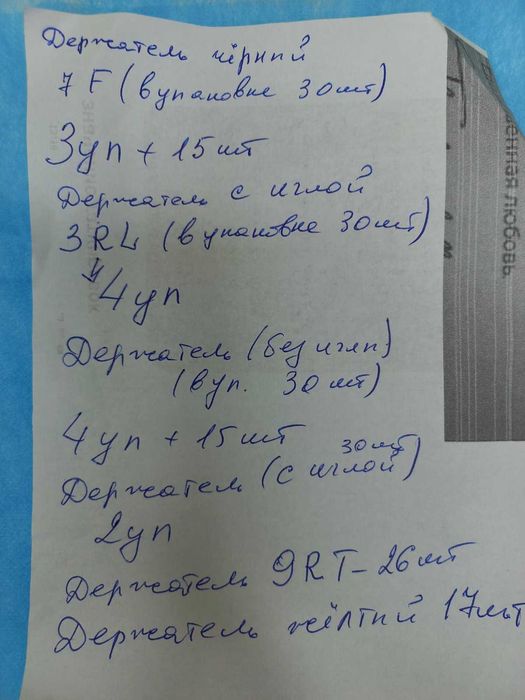 Держатель чёрный
7 F (в упаковке 30 шт)
3 уп + 15 шт
Держатель с иглой
3 RL (в упаковке 30 шт)
4 уп
Держатель (без иглы)
(в уп. 30 шт)
4 уп + 15 шт
30 шт
Держатель (с иглой)
2 уп
Держатель 9RT - 26 шт
Держатель жёлтый 17 шт
енная любовь